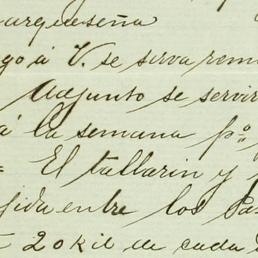 urqueseña
go á V. se sirva rem
Adjunto se servir
á la semana pº
= El tallarin y
gida entre los Pa
20 Kil de cada